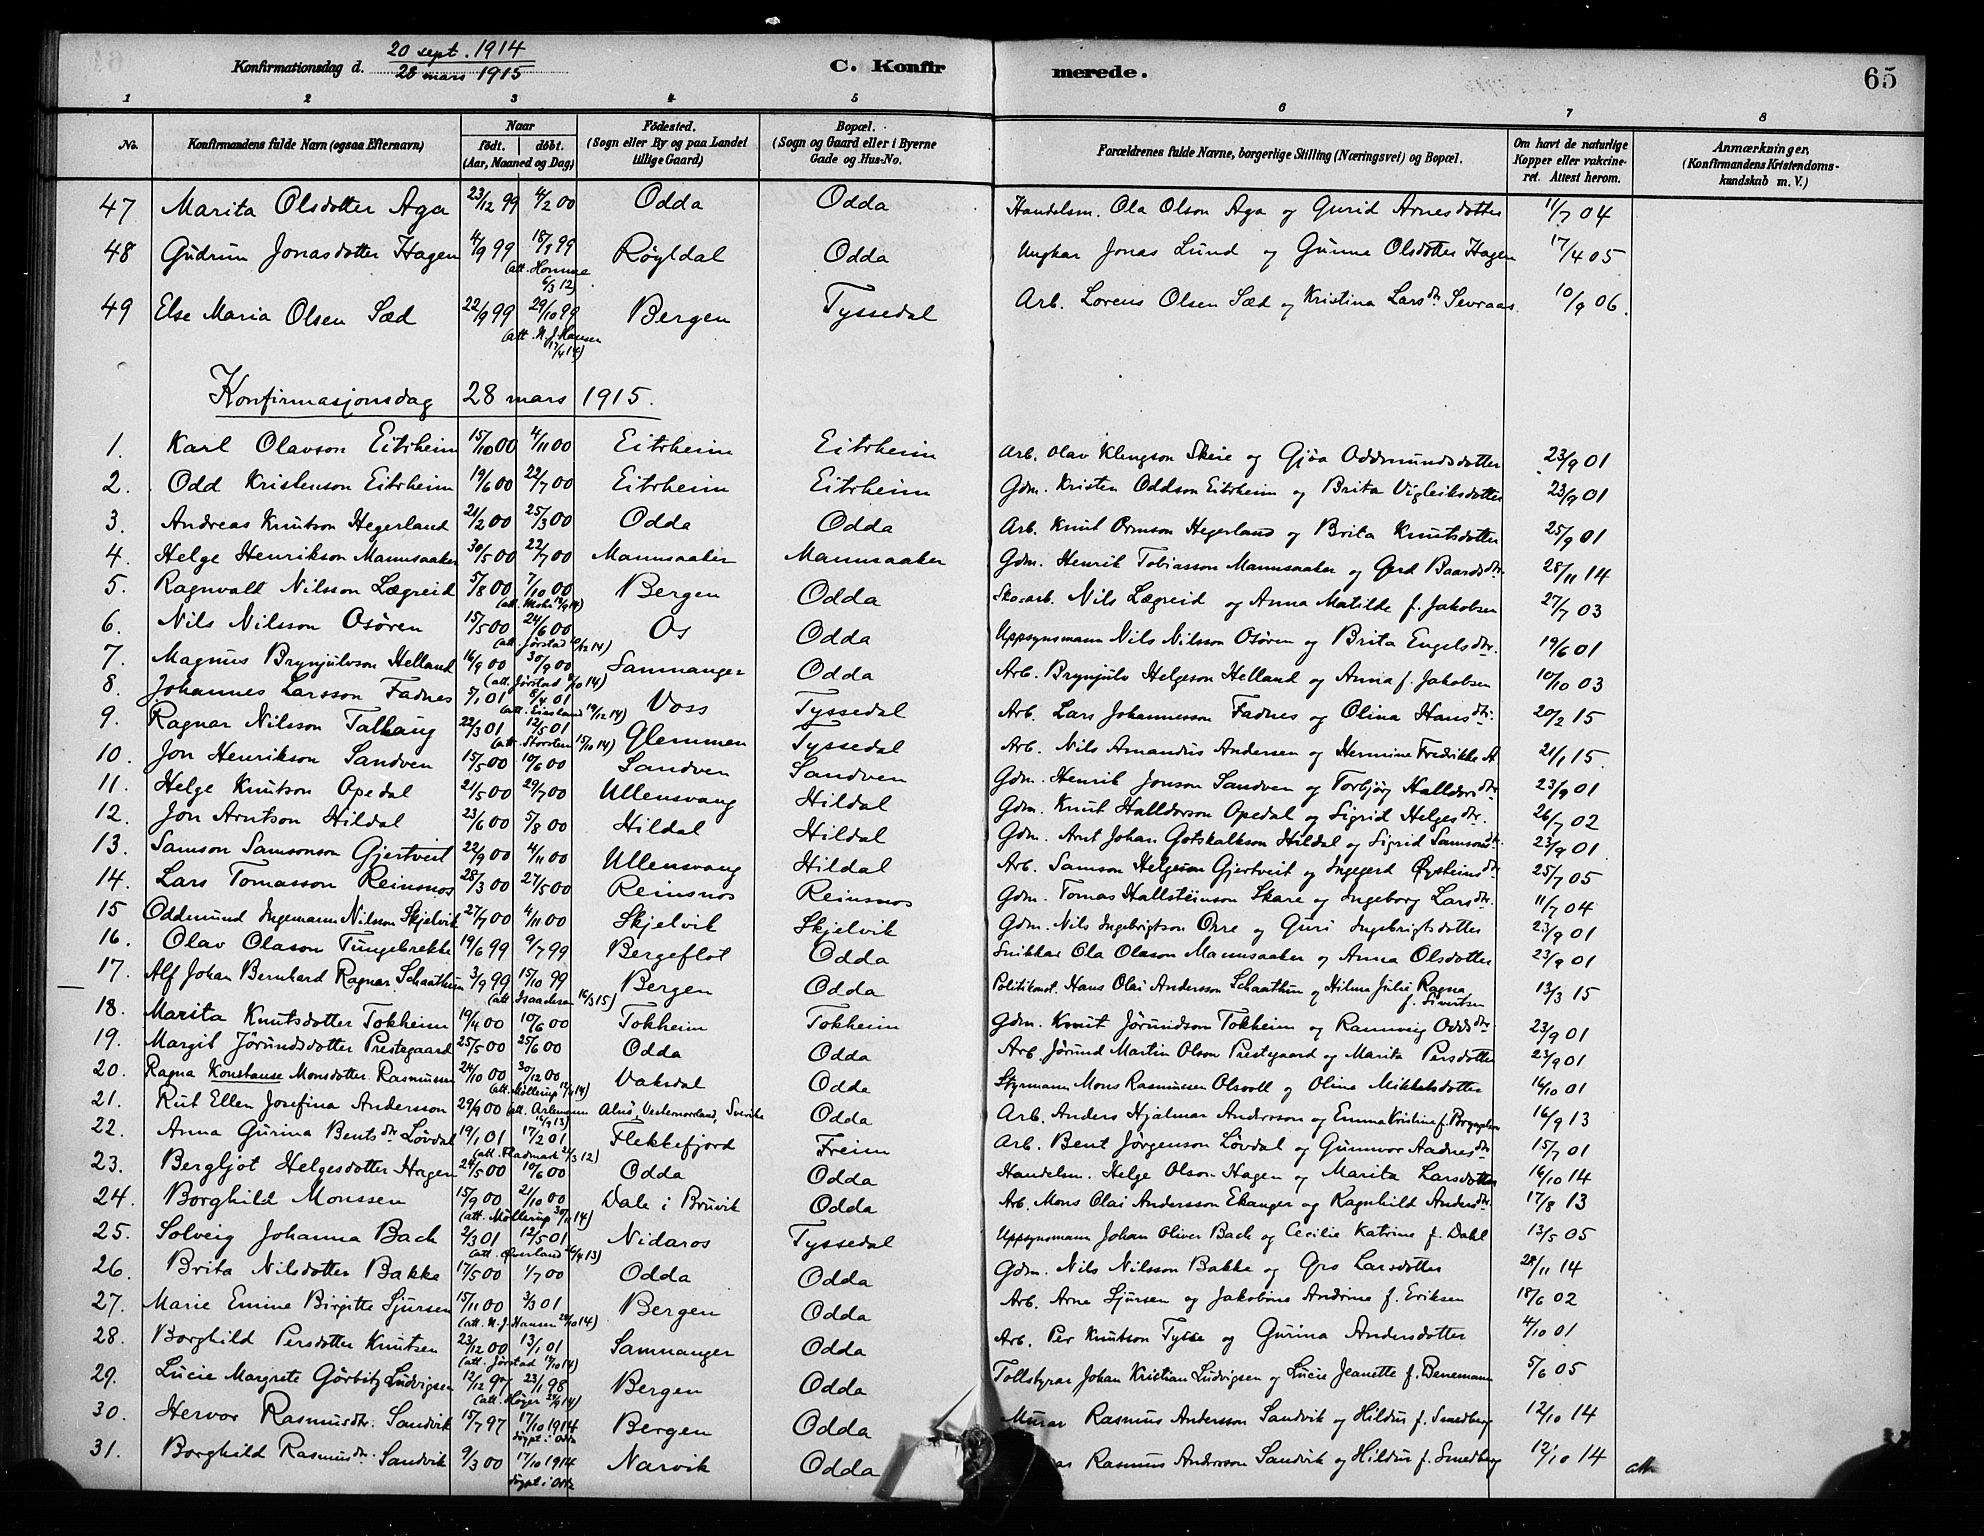 Konfirmationsdag d. 20 sept. 1914
28 mars 1915
C. Konfirmerede.
65
1 2 3 4 5 6 7 8
No. Konfirmandens fulde Navn (ogsaa Efternavn) Naar født. døbt. (Aar, Maaned og Dag) Fødested. (Sogn eller By og paa Landet tillige Gaard) Bopæl. (Sogn og Gaard eller i Byerne Gade og Hus-No. Forældrenes fulde Navne, borgerlige Stilling (Næringsvei) og Bopæl. Om havt de naturlige Kopper eller vakcineret. Attest herom. Anmærkninger, (Konfirmandens Kristendomskundskab m. V.)
47 Marita Olsdotter Aga 23/12 99 4/2 00 Odda Odda Handelsm. Ola Olson Aga og Gurid Arnesdotter 11/7 04
48 Gudrun Jonasdotter Hagen 4/9 99 18/9 99 Røyldal Odda Ungkar Jonas Lund og Gunne Olsdotter Hagen 17/4 05
6/3 12)
49 Else Maria Olsen Sæd 22/9 99 29/10 99 Bergen Tyssedal Arb. Lorens Olsen Sæd og Kristina Larsdtr Sevraas. 10/9 06.
(att. N. J. Hansen
17/4 14)
Konfirmasjonsdag 28 mars 1915.
1. Karl Olavson Eitrheim 15/10 00 4/11 00 Eitrheim Eitrheim Arb. Olav Klengson Skeie og Gjøa Oddmundsdotter 23/9 01
2. Odd Kristenson Eitrheim 19/6 00 22/7 00 Eitrheim Eitrheim Gdm. Kristen Oddson Eitrheim og Brita Vigleiksdotter 23/9 01
3. Andreas Knutson Hegerland 21/2 00 25/3 00 Odda Odda Arb. Knut Ormson Hegerland og Brita Knutsdotter 25/9 01
4. Helge Henrikson Mannsaaker 30/5 00 22/7 00 Mannsaaker Mannsaaker Gdm. Henrik Tobiasson Mannsaaker og Gerd Baardsdtr. 28/11 14
5. Ragnvald Nilsson Lægreid 5/8 00 7/10 00 Bergen Odda Skoarb. Nils Lægreid og Anna Matilde f. Jakobsen 27/7 03
6. Nils Nilsson Osøren 15/5 00 24/6 00 Os Odda Uppsynsmann Nils Nilsson Osøren og Brita Engelsdtr. 19/6 01
7. Magnus Brynjulvson Helland 16/9 00 30/9 00 Samnanger Odda Arb. Brynjulv Helgeson Helland og Anna f. Jakobsen 10/10 03
8. Johannes Larsson Fadnes 5/1 01 8/4 01 Voss Tyssedal Arb. Lars Johannesson Fadnes og Olina Hansdtr. 20/2 15
9. Ragnar Nilsson Talhaug 22/3 01 12/5 01 Glemmen Tyssedal Arb. Nils Amandus Andersen og Hermine Fredrikke A. 21/1 15.
10. Jon Henrikson Sandven 15/5 00 10/6 00 Sandven Sandven Gdm. Henrik Jonson Sandven og Torbjøg Halldorsdtr 23/9 01
11. Helge Knutson Opedal 21/5 00 29/7 00 Ullensvang Hildal Gdm. Knut Halldorson Opedal og Sigrid Helgesdtr. 26/7 02
12. Jon Arntson Hildal 23/6 00 5/8 00 Hildal Hildal Gdm. Arnt Johan Gotskalkson Hildal og Sigrid Samsonsdtr 23/9 01
13. Samson Samsonson Gjertveit 22/9 00 4/11 00 Ullensvang Hildal Arb. Samson Helgeson Gjertveit og Ingegerd Øysteinsdtr 25/7 05
14. Lars Tomasson Reinsnos 28/3 00 27/5 00 Reinsnos Reinsnos Gdm. Tomas Hallsteinson Skare og Ingeborg Larsdtr. 11/7 04
15 Oddmund Ingemann Nilsson Skjelvik 27/7 00 4/11 00 Skjelvik Skjelvik Gdm. Nils Ingebrigtson Orre og Guri Ingebrigtsdotter 23/9 01
16. Olav Olason Tungebrekke 19/6 99 9/7 99 Bergeflot Odda Snikkar Ola Olason Mannsaaker og Anna Olsdotter 23/9 01
17. Alf Johan Bernhard Ragnar Schaathun 3/9 99 15/10 99 Bergen Odda Politikonst. Hans Olai Andersson Schaathun og Hilma Julie Ragna f. Sivertsen 13/3 15
(att. Isaachsen 16/3 15)
18. Marita Knutsdotter Tokheim 19/4 00 10/6 00 Tokheim Tokheim Gdm. Knut Jørundson Tokheim og Rannveig Oddsdtr 23/9 01
19. Margit Jørundsdotter Prestegaard 25/5 00 25/6 00 Odda Odda Arb. Jørund Martin Olson Prestegaard og Marita Persdotter 23/9 01
20. Ragna Konstanse Monsdotter Rasmussen 24/10 00 30/12 00 Vaksdal Odda Styrmann Mons Rasmussen Olsvoll og Oline Mikkelsdotter 16/10 01
21. Rut Ellen Josefina Andersson 29/9 00 Alnö, Vesternorrland, Sverike Odda Arb. Anders Hjalmar Andersson og Emma Kristine f. 16/9 13
22. Anna Gurina Bentsdtr Løvdal 19/1 01 17/2 01 Flekkefjord Freim Arb. Bent Jørgenson Løvdal og Gunnvor Aadnesdtr 15/7 01
23. Bergljot Helgesdotter Hagen 24/5 00 10/6 00 Odda Odda Handelsm. Helge Olson Hagen og Marita Larsdotter 16/10 14
24. Borghild Monssen 15/9 00 21/10 00 Dale i Bruvik Odda Arb. Mons Olai Andersson Ekanger og Ragnhild Andersdtr. 17/8 13
(att. Møllerup 30/11 14)
25. Solveig Johanna Bach 2/3 01 12/5 01 Nidaros Tyssedal Uppsynsmann Johan Oliver Bach og Cecilie Katrine f. Dahl 13/5 05
26. Brita Nilsdotter Bakke 17/5 00 1/7 00 Odda Odda Gdm. Nils Nilsson Bakke og Gro Larsdotter 28/11 14
27. Marie Emine Birgitte Sjursen 15/11 00 3/3 01 Bergen Odda Arb. Arne Sjursen og Jakobine Andrine f. Eriksen 18/6 02
28. Borghild Persdotter Knutsen 23/12 00 13/1 01 Samnanger Odda Arb. Per Knutson Tysse og Gurina Andersdotter 4/10 01
29. Lucie Margrete Görbitz Ludvigsen 12/12 97 23/1 98 Bergen Odda Tollstyrar Johan Kristian Ludvigsen og Lucie Jeanette f. Benemann 5/6 05
30. Hervor Rasmusdtr. Sandvik 15/7 97 17/10 1914 Bergen Odda Murar Rasmus Andersson Sandvik og Hildur f. Smedberg 12/10 14
døypt i Odda
31. Borghild Rasmusdtr. Sandvik 9/3 00 17/10 1914 Narvik Odda Rasmus Andersson Sandvik og Hildur f. Smedberg 12/10 14 att.
døypt i Odda